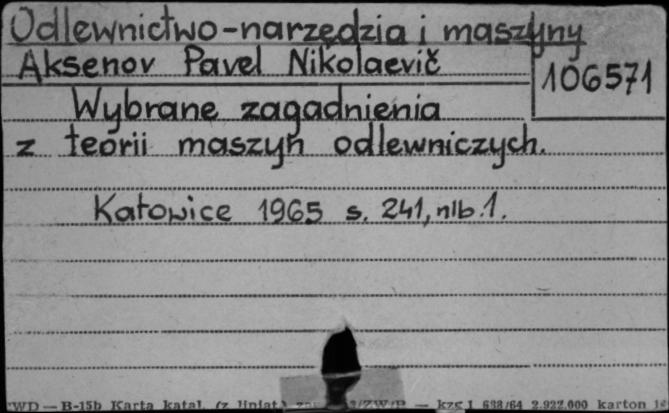 Odlewnictwo-narzędzia i maszyny
Aksenov Pavel Nikolaevič
106571
Wybrane zagadnienia
z teorii maszyn odlewniczych.
Katowice 1965 s. 241, nlb. 1.
WD — B-15b Karta katal. (z liniat.) — kzg 1 638/64 2.927.000 karton